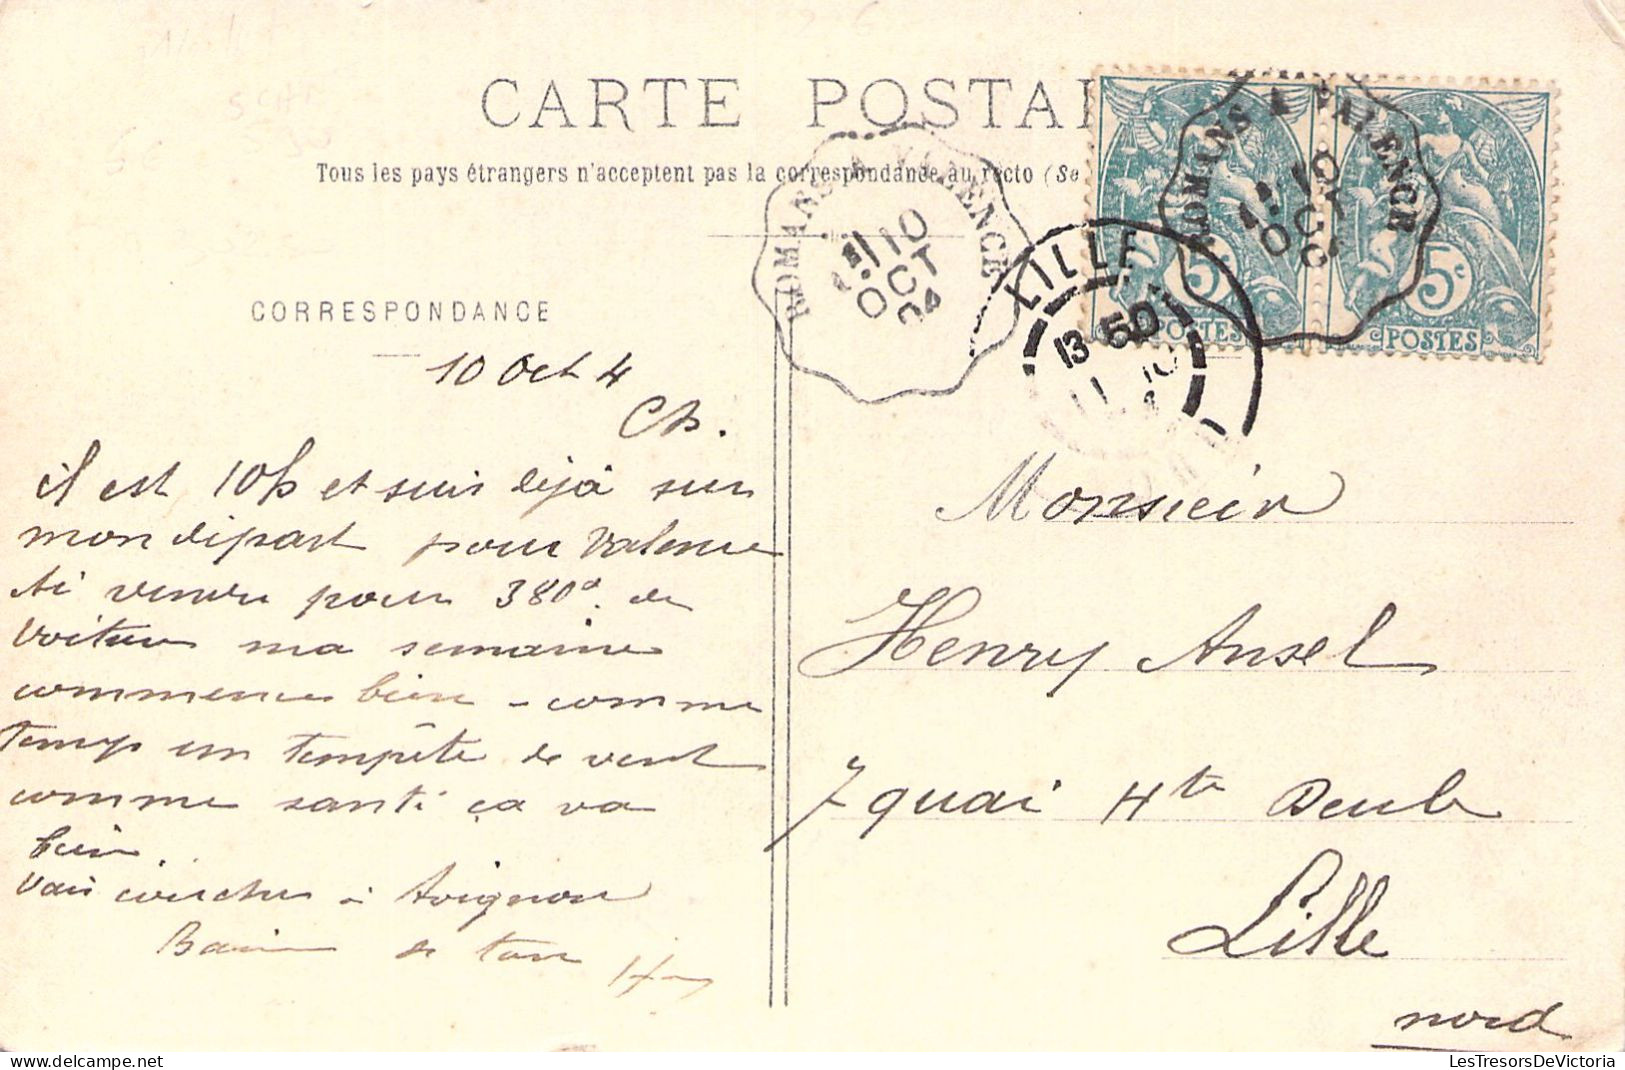 CARTE POSTA
Tous les pays étrangers n'acceptent pas la correspondance au recto (Se
ROMANS A VALENCE
10
OCT
04
ROMANS A VALENCE
10
OC
LILLE
13 50
11 10
5c
POSTES
5c
POSTES
CORRESPONDANCE
10 Oct 4
Ch.
il est 10h et suis déjà sur
mon départ pour Valence
ai vendu pour 380 de
voiture ma semaine
commence bien - comme
temps un tempête de vent
comme santé ça va
bien.
vais coucher à Avignon
de ton
Monsieur
Henry Ansel
7 quai Hte Deule
Lille
nord
LesTresorsDeVictoria
delcampe.net